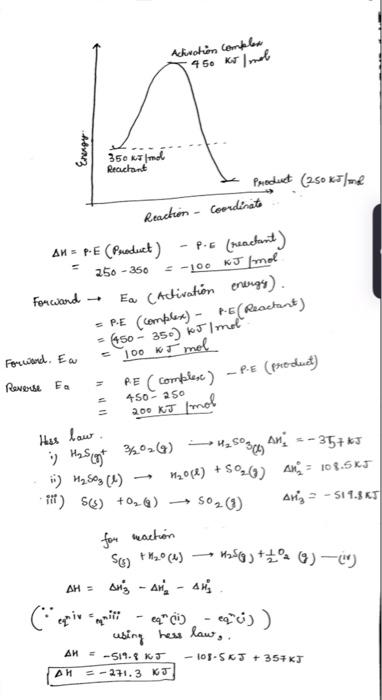 Activation Complex
450 KJ/mol
Energy
350 KJ/mol
Reactant
Product (250 KJ/mol
Reaction - Coordinate
ΔH = P.E (Product) - P.E (reactant)
= 250 - 350 = -100 KJ/mol
Forward → Ea (Activation energy).
= P.E (complex) - P.E (Reactant)
= (450 - 350) KJ/mol
Forward. Ea = 100 KJ mol
Reverse Ea = P.E (complex) - P.E (product)
= 450 - 250
= 200 KJ/mol
Hess law.
i) H2S(g) + 3/2 O2(g) → H2SO3(l) ΔH1° = -357 KJ
ii) H2SO3(l) → H2O(l) + SO2(g) ΔH2° = 108.5 KJ
iii) S(s) + O2(g) → SO2(g) ΔH3° = -519.8 KJ
for reaction
S(s) + H2O(l) → H2S(g) + 1/2 O2 (g) —(iv)
ΔH = ΔH3° - ΔH2° - ΔH1°
(∵ eqn iv = eqn iii - eqn (ii) - eqn (i))
using hess law,
ΔH = -519.8 KJ - 108.5 KJ + 357 KJ
ΔH = -271.3 KJ